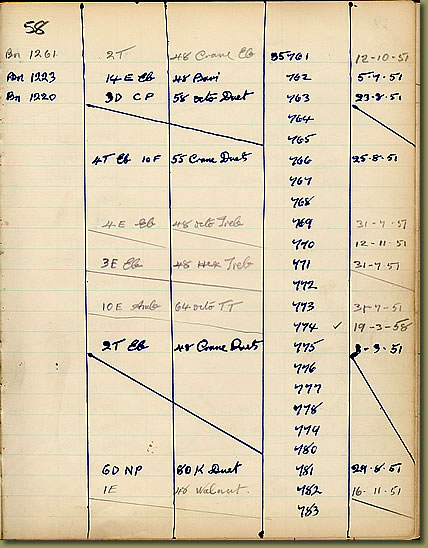 58
Bn 1261 2T 48 Crane Eb 35761 12-10-51
Bn 1223 14 E Eb 48 762 5-7-51
Bn 1220 3D CP 58 octo Duet 763 23-8-51
764
765
4T Eb 10F 55 Crane Duet 766 25-8-51
767
768
4E Eb 48 octo Treb 769 31-7-51
770 12-11-51
3E Eb 48 Hex Treb 771 31-7-51
772
10E 64 octo TT 773 31-7-51
774 ✓ 19-3-58
2T Eb 48 Crane Duet 775 -3-51
776
777
778
779
780
6D NP 80 K Duet 781 29-8-51
1E 48 Walnut. 782 16-11-51
783